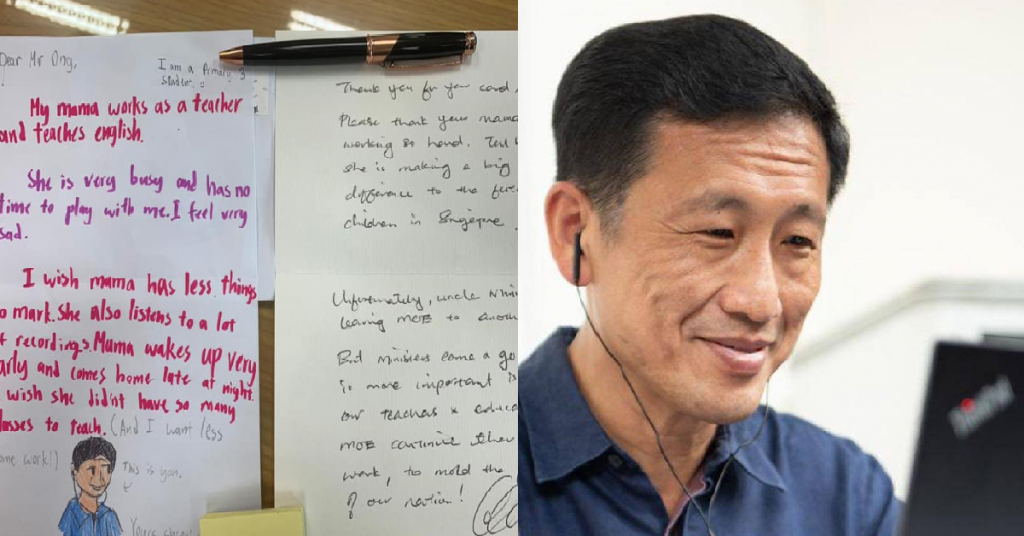 Dear Mr Ong,
I am a Primary 3
My mama works as a teacher
and teaches english.
She is very busy and has no
time to play with me. I feel very
sad.
I wish mama has less things
o mark. She also listens to a lot
f recordings. Mama wakes up very
arly and comes home late at night.
wish she didn't have so many
lasses to teach. (And I want less
ome work!)
This is you.
Yours
Thank you for your card
Please thank your mama
working so hard. Tell
she is making a big
difference to the
children in Singapore.
Unfortunately, uncle
leaving MOE to
But ministers come & go
is more important is
our teachers &
MOE continue
work, to mold the
of our nation!
ThinkPad